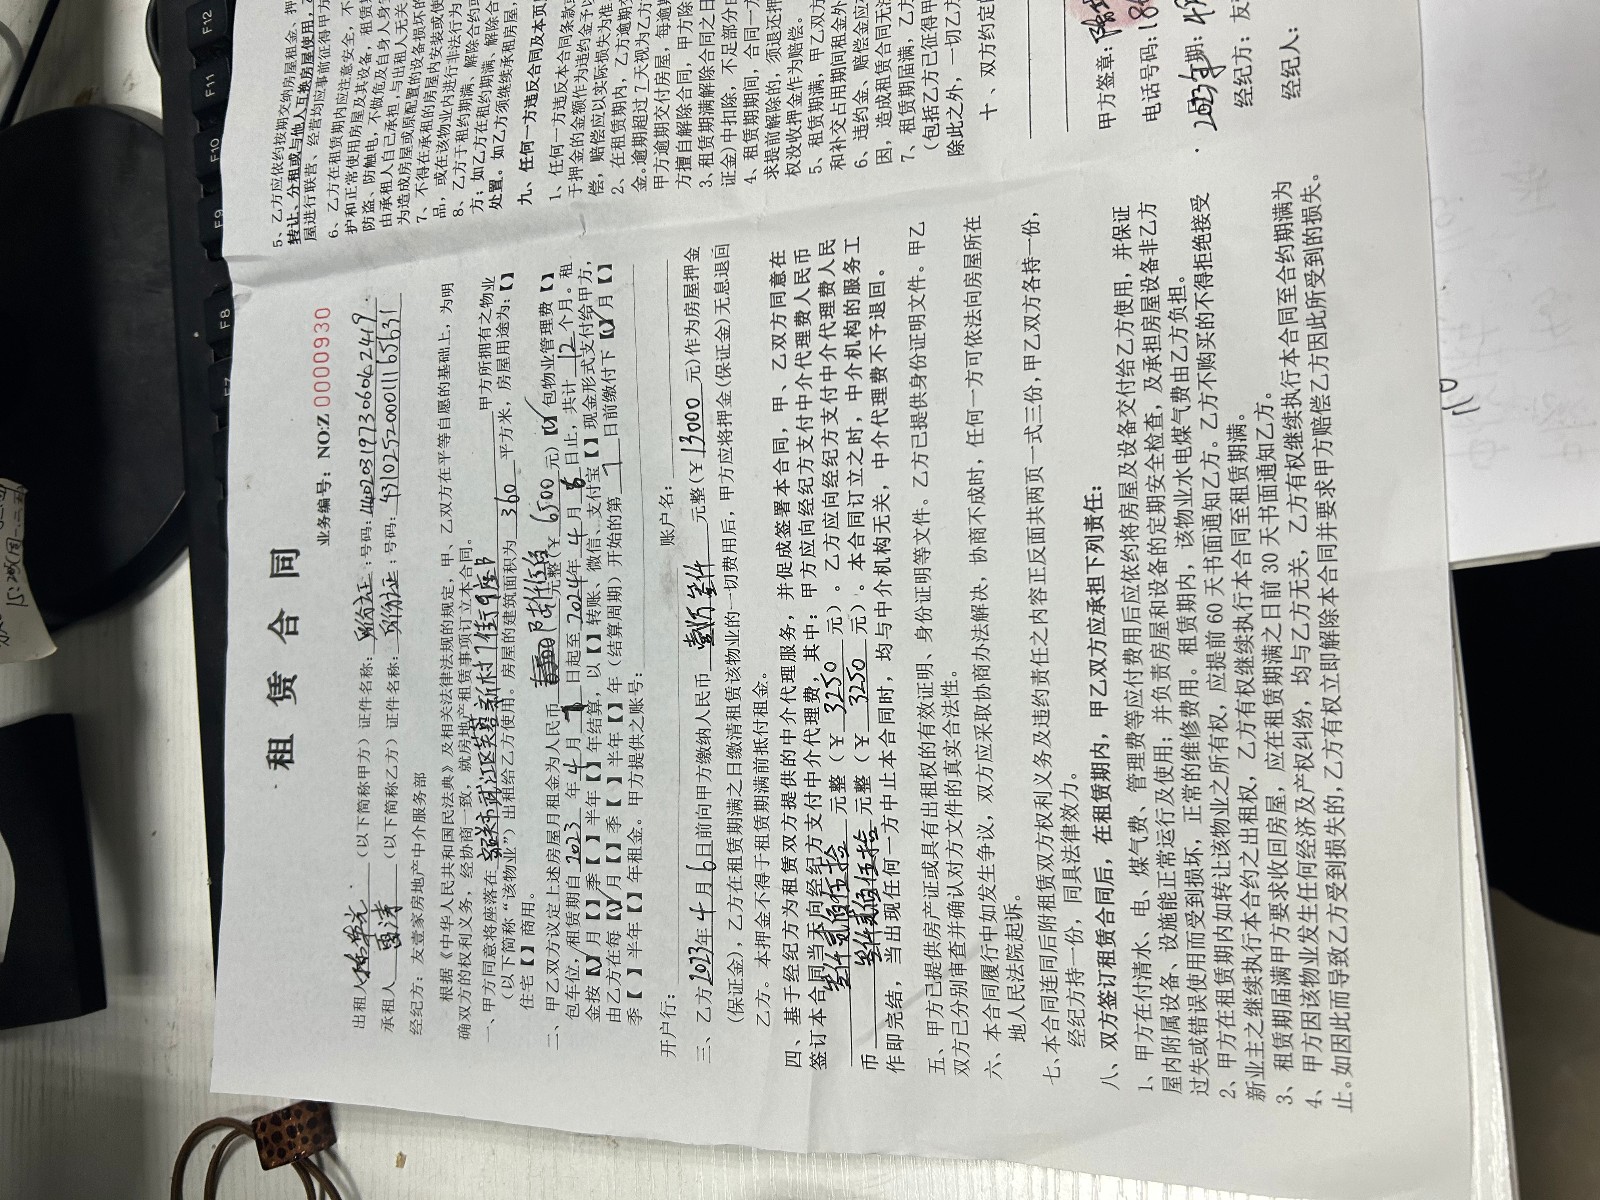 租赁合同
业务编号：NO:Z 0000930
出租人（以下简称甲方）证件名称：身份证：号码：
承租人（以下简称乙方）证件名称：身份证：号码：
经纪方：友壹家房地产中介服务部
根据《中华人民共和国民法典》及相关法律法规的规定，甲、乙双方在平等自愿的基础上，为明
确双方的权利义务，经协商一致，就房地产租赁事项订立本合同。
一、甲方同意将座落在 甲方所拥有之物业
（以下简称“该物业”）出租给乙方使用。房屋的建筑面积为 360 平方米，房屋用途为：【】
住宅【】商用。
二、甲乙双方议定上述房屋月租金为人民币 陆仟伍佰 元整（￥6500元）【√】包物业管理费【】
包车位，租赁期自 2023 年 4 月 7 日起至 2024 年 4 月 6 日止，共计 12 个月。租
金按【√】月【】季【】半年【】年结算，以【】转账、微信、支付宝【】现金形式支付给甲方，
由乙方在每【√】月【】季【】半年【】年（结算周期）开始的第 7 日前缴付下【√】月【】
季【】半年【】年租金。甲方提供之账号：
开户行： 账户名：
三、乙方 2023年 4 月 6 日前向甲方缴纳人民币 壹万叁仟 元整（￥13000 元）作为房屋押金
（保证金），乙方在租赁期满之日缴清租赁该物业的一切费用后，甲方应将押金（保证金）无息退回
乙方。本押金不得于租赁期满前抵付租金。
四、基于经纪方为租赁双方提供的中介代理服务，并促成签署本合同，甲、乙双方同意在
签订本合同当天向经纪方支付中介代理费，其中：甲方应向经纪方支付中介代理费人民币
叁仟贰佰伍拾 元整（￥ 3250 元）。乙方应向经纪方支付中介代理费人民
币 叁仟贰佰伍拾 元整（￥ 3250 元）。本合同订立之时，中介机构的服务工
作即完结，当出现任何一方中止本合同时，均与中介机构无关，中介代理费不予退回。
五、甲方已提供房产证或具有出租权的有效证明、身份证明等文件。乙方已提供身份证明文件。甲乙
双方已分别审查并确认对方文件的真实合法性。
六、本合同履行中如发生争议，双方应采取协商办法解决，协商不成时，任何一方可依法向房屋所在
地人民法院起诉。
七、本合同连同后附租赁双方权利义务及违约责任之内容正反面共两页一式三份，甲乙双方各持一份，
经纪方持一份，同具法律效力。
八、双方签订租赁合同后，在租赁期内，甲乙双方应承担下列责任：
1、甲方在付清水、电、煤气费、管理费等应付费用后应依约将房屋及设备交付给乙方使用，并保证
屋内附属设备、设施能正常运行及使用；并负责房屋和设备的定期安全检查，及承担房屋设备非乙方
过失或错误使用而受到损坏，正常的维修费用。租赁期内，该物业水电煤气费由乙方负担。
2、甲方在租赁期内如转让该物业之所有权，应提前 60 天书面通知乙方。乙方不购买的不得拒绝接受
新业主之继续执行本合约之出租权，乙方有权继续执行本合同至租赁期满。
3、租赁期届满甲方要求收回房屋，应在租赁期满之日前 30 天书面通知乙方。
4、甲方因该物业发生任何经济及产权纠纷，均与乙方无关，乙方有权继续执行本合同至合约期满为
止。如因此而导致乙方受到损失的，乙方有权立即解除本合同并要求甲方赔偿乙方因此所受到的损失。
5、乙方应依约按期交纳房屋租金、押
转让、分租或与他人互换房屋使用，
屋进行联营、经营均应事前征得甲方
6、乙方在租赁期内应注意安全，不
护和正常使用房屋及其设备，租赁
防盗、防触电，不做危及自身人身
由承租人自己承担，与出租人无关
为造成房屋或原配置的设备损坏的
7、不得在承租的房屋内安装或使
品，或在该物业内进行非法行为
8、乙方于租约期满、解除合约
方；如乙方在租约期满、解除合
处置。如乙方须继续承租房屋，
九、任何一方违反合同及本页
1、任何一方违反本合同条款或
于押金的金额作为违约金予以
偿，赔偿应以实际损失为准
2、在租赁期内，乙方逾期交
金。逾期超过 7 天视为乙方
甲方逾期交付房屋，每逾期
方擅自解除合同，甲方除
3、租赁期满解除合同之日
证金）中扣除，不足部分
4、租赁期期间，合同一方
求提前解除的，须退还押
权没收押金作为赔偿。
5、租赁期满，甲乙双方
和补交占用期间租金外
6、违约金、赔偿金应
因，造成租赁合同无法
7、租赁期届满，乙方
（包括乙方已征得甲
除此之外，一切乙方
十、双方约定
甲方签章：
电话号码：
日期：
经纪方：友
经纪人：
F12
F11
F10
F9
F8
F7